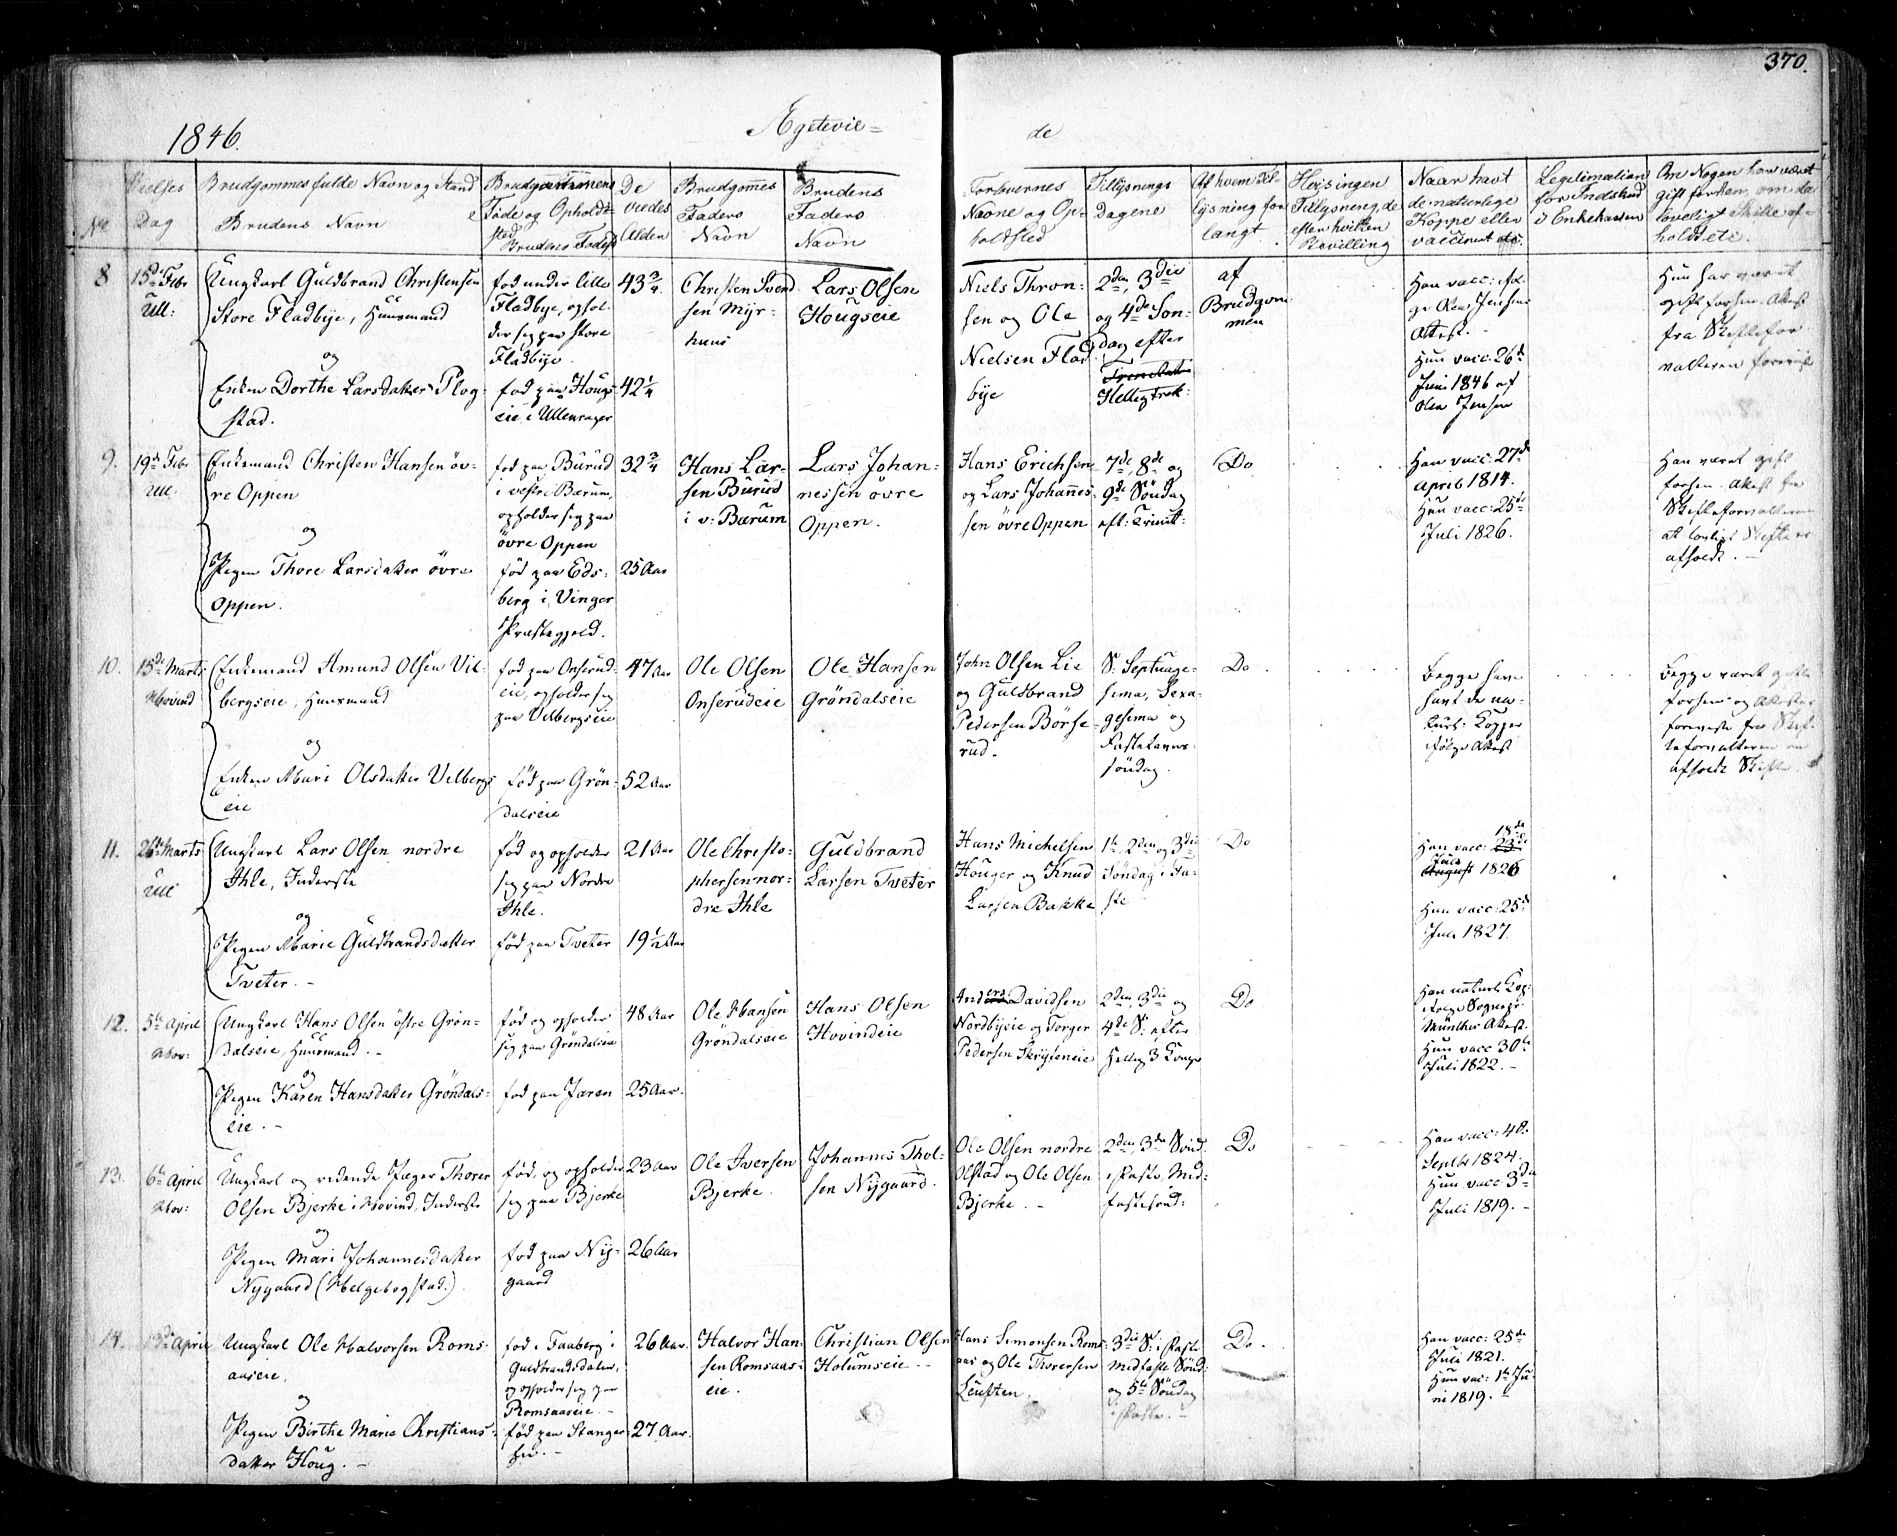 370.
1846.
Ægtevie=
de
No
Vielses
Dag
Brudgommes fulde Navn og Stand
Brudens Navn
Brudgommens
Føde og Opholdt
sted
Brudens Fødest
De
viedes
Alder
Brudgoms
Faders
Navn
Brudens
Faders
Navn
Forlovernes
Navne og Op-
holdsted
Tillysnings
Dagene
Af hvem Til-
lysning for
langt.
Hvis ingen
Tillysning, da
efter hvilken
Bevilling
Naar havt
de naturlige
Koppe eller
vaccineret etc.
Legitimation
for Indskud
i Enkekassen
Om Nogen har været
gift før
lovligt Skifte af-
holdt etc.
8
15de Febr
Ull:
Ungkarl Guldbrand Christensen
Store Fladbye, Huusmand
og
Enken Dorthe Larsdatter Plog-
stad.
fød under lille
Fladbye, ophol-
der sig paa Store
Fladbye.
fød paa Hougs-
eie i Ullensager
43 3/4
42 1/4
Christen Svend
sen Myr-
huus
Lars Olsen
Hougseie
Niels Thron-
sen og Ole
Nielsen Flad-
bye
2den, 3die
og 4de Søn-
dag efter
Hellig trek:
af
Brudgom
men
Han vacc: iføl-
ge Ole Jensens
Attest.
Hun vacc: 26de
Juni 1846 af
Ole Jensen
Hun har været
gift forhen. Attest
fra Skiftefor-
valteren foreviist
9.
19de Febr
Ull.
Enkemand Christen Hansen öv-
re Oppen
og
Pigen Thore Larsdatter övre
Oppen.
fød paa Burud
i vestre Bærum,
opholder sig paa
övre Oppen
fød paa Eds-
berg i Vinger
Præstegjeld.
32 3/4
25 Aar
Hans Lar-
sen Burud
i v: Bærum
Lars Johan-
nessen övre
Oppen.
Hans Erichsen
og Lars Johannes-
sen övre Oppen
7de, 8de og
9de Søndag
eft: Trinit:
Do
Han vacc: 27de
April 1814.
Hun vacc: 25de
Juli 1826.
Han været gift
forhen. Attest fra
Skifteforvalteren
at lovligt Skifte er
afholdt. -
10.
15de Marts
Hovind
Enkemand Amund Olsen Vil-
bergseie, Huusmand
og
Enken Mari Olsdatter Vilbergs
eie
fød paa Onsrud-
eie, opholder sig
paa Vilbergseie
fød paa Grön-
dalseie
47 Aar
52 Aar
Ole Olsen
Onsrudeie
Ole Hansen
Gröndalseie
John Olsen Lie
og Guldbrand
Pedersen Börse-
rud.
S: Septuage-
sima, Sexa-
gesima og
Fastelavns-
söndag.
Do
Begge have
havt de na-
turl: Kopper
ifølge Attest
Begge været gifte
forhen og Attester
foreviste fra Skif-
teforvalteren om
afholdt Skifte
11.
26de Marts
Ull
Ungkarl Lars Olsen nordre
Ihle, Inderste
og
Pigen Marie Guldbrandsdatter
Tveter. -
fød og opholder
sig paa Nordre
Ihle.
fød paa Tveter
21 Aar
19 1/2 Aar
Ole Christo-
phersen nor-
dre Ihle
Guldbrand
Larsen Tveter
Hans Michelsen
Houger og Knud
Larsen Bakke
1ste, 2den og 3die
Söndag i Fa-
ste
Do
18de
Han vacc: 23de
Juli
August 1826
Hun vacc: 25de
Juli 1827.
12.
5te April
Hov:
Ungkarl Hans Olsen östre Grön-
dalseie, Huusmand. -
og
Pigen Karen Hansdatter Gröndals-
eie. -
fød og opholder
sig paa Gröndalseie
fød paa Jaren
48 Aar
25 Aar.
Ole Hansen
Gröndalseie
Hans Olsen
Hovindeie
Anders Davidsen
Nordbyeie og Torger
Pedersen Skryseneie
2den, 3die og
4de S: efter
Hellig 3 Konger
Do
Han naturl: Kop:
ifølge Sognepr:
Münthes Attest.
Hun vacc 30te
Juli 1822. -
13.
6te April
Hov:
Ungkarl og ridende Jæger Thorer
Olsen Bjerke i Hovind, Inderste
og
Pigen Mari Johannesdatter
Nygaard (Helgebogstad.)
fød, og opholder
sig paa Bjerke
fød paa Ny-
gaard
23 Aar
26 Aar
Ole Iversen
Bjerke.
Johannes Thol-
sen Nygaard.
Ole Olsen nordre
Olstad og Ole Olsen
Bjerke. -
2den, 3die Sönd.
i Faste, Mid-
fastesönd:
Do
Han vacc: 4de
Septbr 1824.
Hun vacc 3die
Juli 1819. -
14.
13de April
Ungkarl Ole Halvorsen Roms-
aaseie,
og
Pigen Birthe Marie Christians-
datter Houg. -
fød i Faaberg i
Guldbrandsdalen,
og opholder sig paa
Romsaaseie. -
fød paa Stanger-
hu. -
26 Aar.
27 Aar.
Halvor Han-
sen Romsaas-
eie.
Christian Olsen
Holumseie. -
Hans Simonsen Roms-
aas og Ole Thorersen
Leusten.
3die S: i Faste
Midfaste Sönd:
og 5te Söndag
i Faste. -
Do.
Han vacc: 25de
Juli 1821.
Hun vac: 1ste Ju-
ni 1819. -